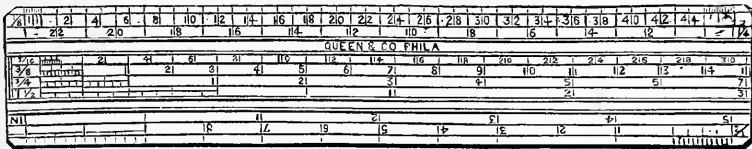 1/8 2 4 6 8 10 12 14 16 18 20 22 24 26 28 30 32 34 36 38 40 42 44
22 20 18 16 14 12 10 8 6 4 2 1/4
QUEEN & CO PHILA
3/16 2 4 6 8 10 12 14 16 18 20 22 24 26 28 30
3/8 2 3 4 5 6 7 8 9 10 11 12 13 14
3/4 1 2 3 4 5 6 7
1 1/2 1 2 3
IN 11 12 13 14 15
8 7 6 5 4 3 2 1